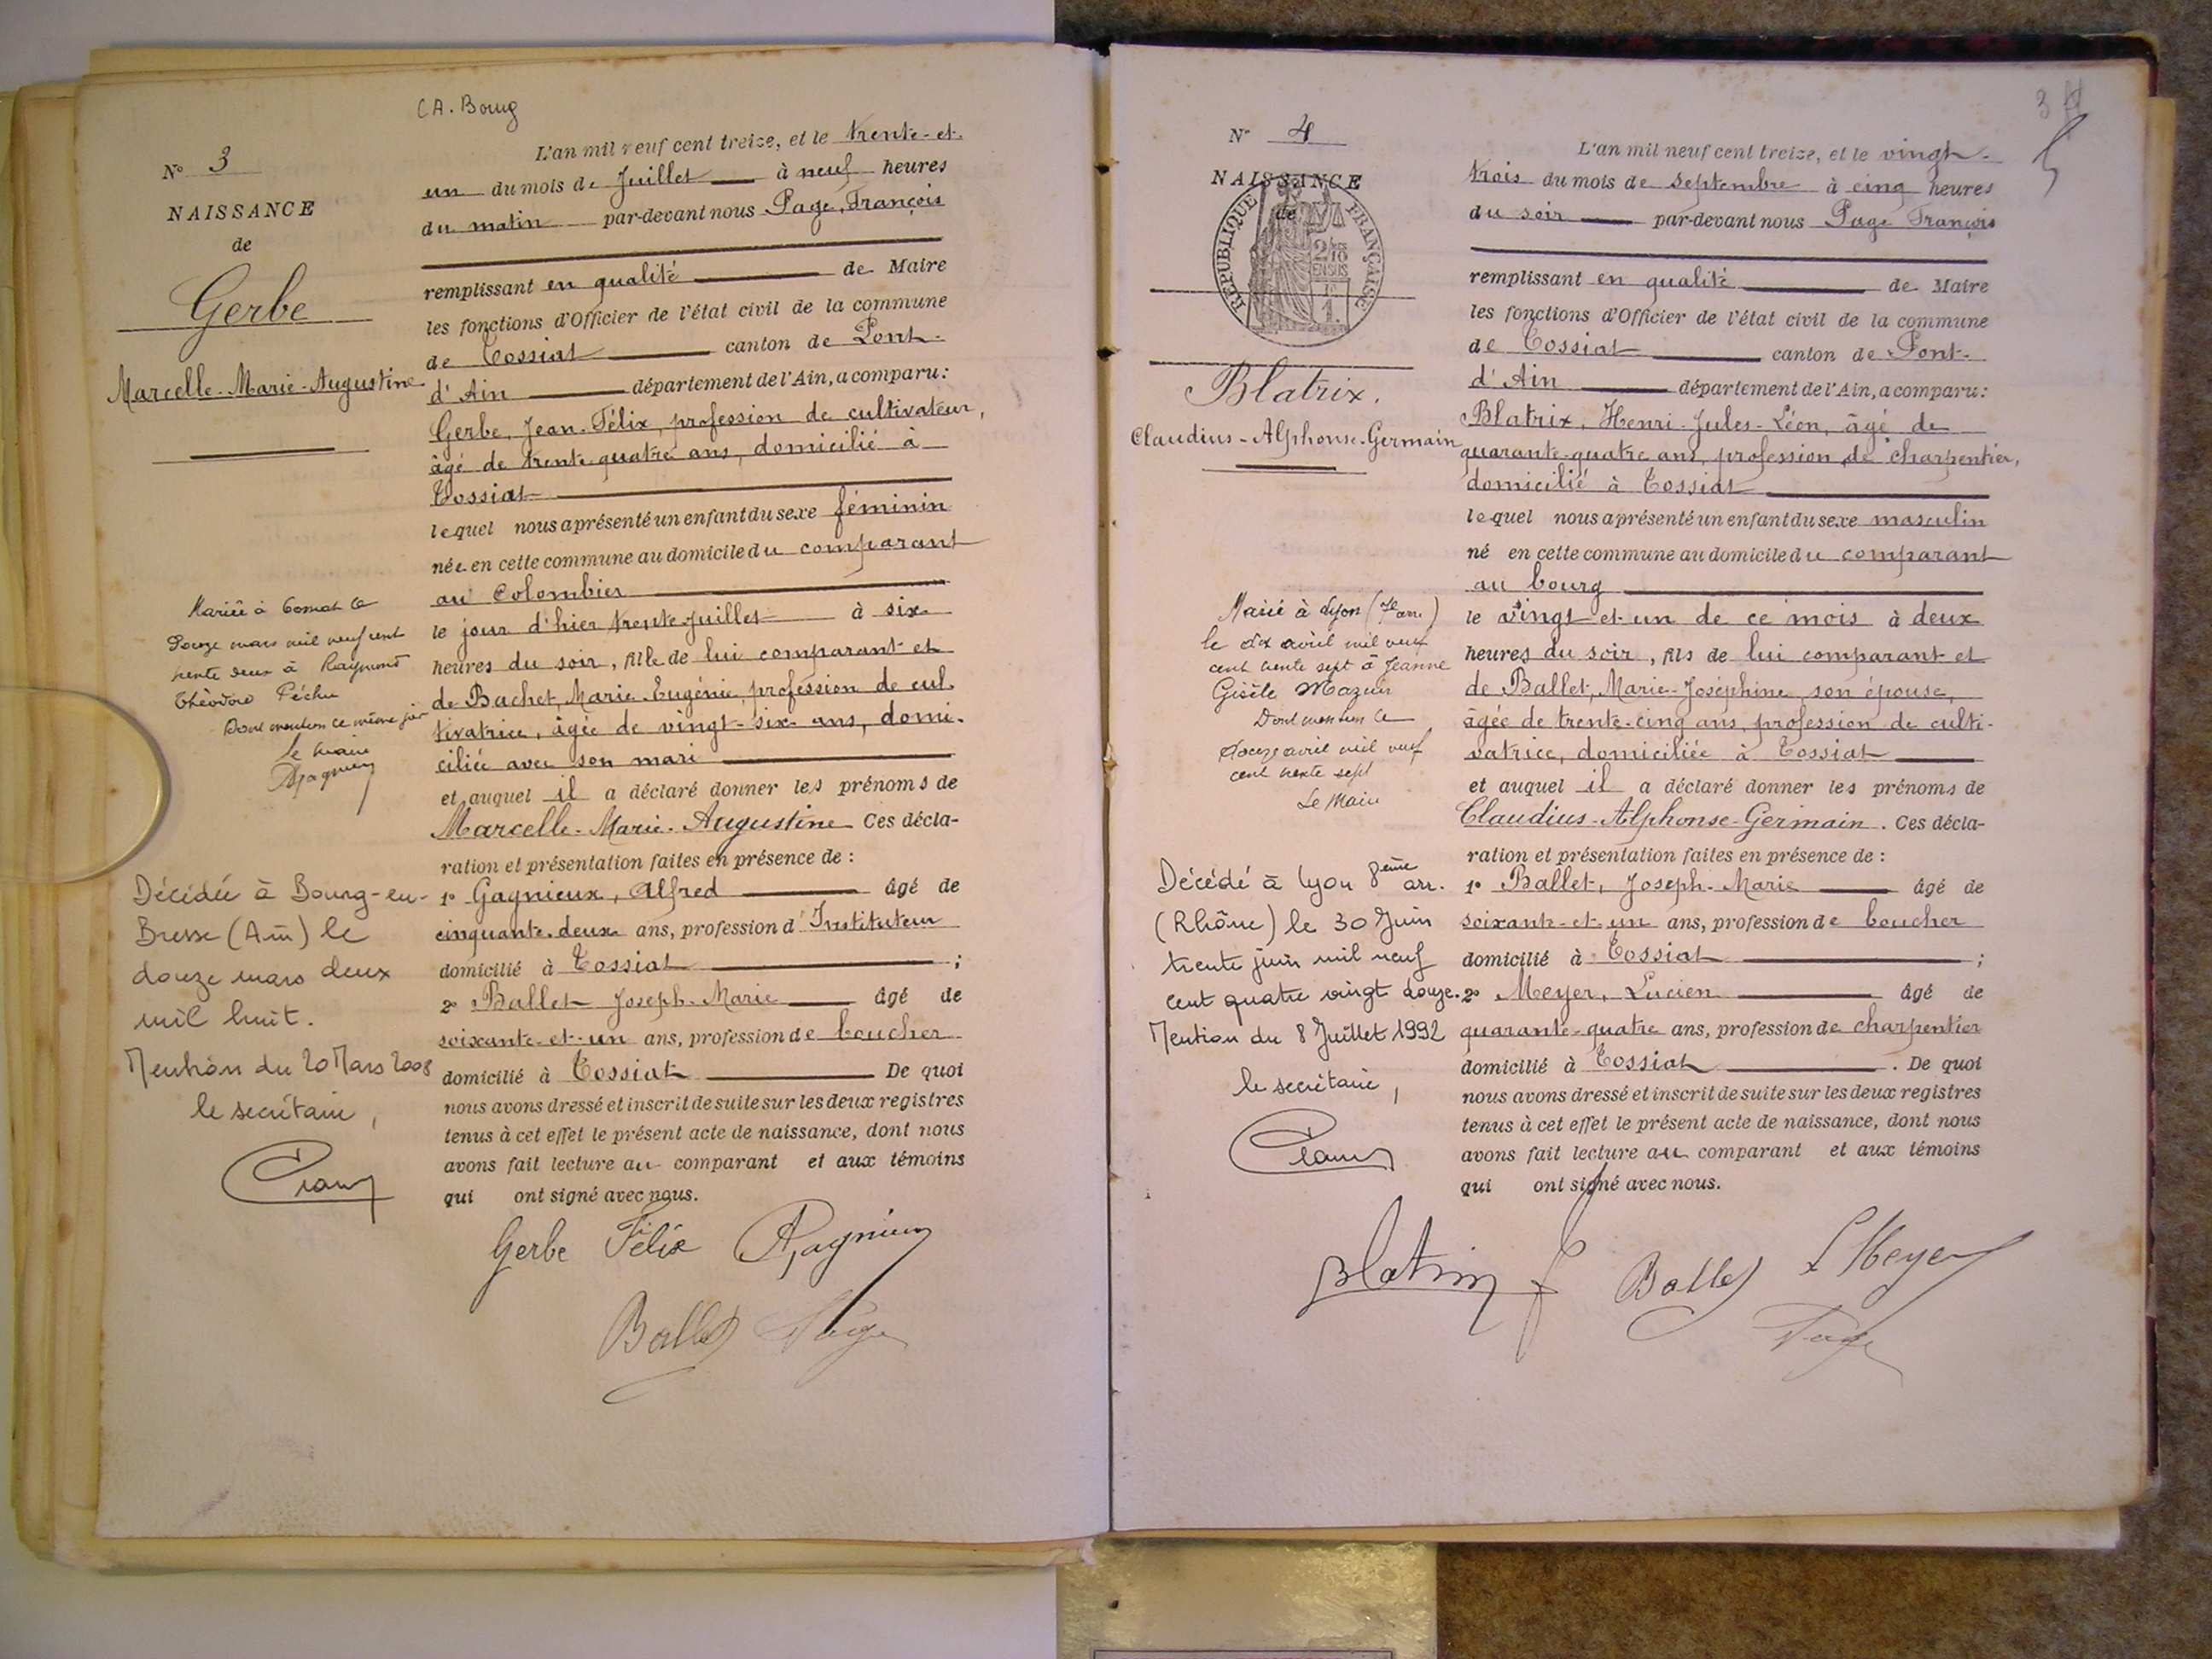 CA. Bourg
N° 3
NAISSANCE
de
Gerbe
Marcelle-Marie-Augustine
L'an mil neuf cent treize, et le trente-et-
un du mois de Juillet à neuf heures
du matin par-devant nous Page, François
remplissant en qualité de Maire
les fonctions d'Officier de l'état civil de la commune
de Tossiat canton de Pont-
d'Ain département de l'Ain, a comparu :
Gerbe, Jean-Félix, profession de cultivateur,
âgé de trente-quatre ans, domicilié à
Tossiat
lequel nous a présenté un enfant du sexe féminin
née en cette commune au domicile du comparant
au Colombier
le jour d'hier trente Juillet à six
heures du soir, fille de lui comparant et
de Bachet, Marie-Eugénie, profession de cul-
tivatrice, âgée de vingt-six ans, domi-
ciliée avec son mari
et auquel il a déclaré donner les prénoms de
Marcelle-Marie-Augustine Ces décla-
ration et présentation faites en présence de :
1° Gagnieux, Alfred âgé de
cinquante-deux ans, profession d'Instituteur
domicilié à Tossiat ;
2° Ballet Joseph-Marie âgé de
soixante-et-un ans, profession de boucher
domicilié à Tossiat De quoi
nous avons dressé et inscrit de suite sur les deux registres
tenus à cet effet le présent acte de naissance, dont nous
avons fait lecture au comparant et aux témoins
qui ont signé avec nous.
Gerbe Félix AGagnieux
Ballet Page
Mariée à Tossiat le
douze mars mil neuf cent
trente deux à Raymond
Théodore Péchu
Dont mention ce même jour
Le Maire
Décédée à Bourg-en-
Bresse (Ain) le
douze mars deux
mil huit.
Mention du 20 Mars 2008
le secrétaire,
N° 4
NAISSANCE
de
RÉPUBLIQUE FRANÇAISE
2/10
EN SUS
1
Blatrix.
Claudius-Alphonse-Germain
L'an mil neuf cent treize, et le vingt-
trois du mois de septembre à cinq heures
du soir par-devant nous Page François
remplissant en qualité de Maire
les fonctions d'Officier de l'état civil de la commune
de Tossiat canton de Pont-
d'Ain département de l'Ain, a comparu :
Blatrix, Henri-Jules-Léon, âgé de
quarante-quatre ans, profession de charpentier,
domicilié à Tossiat
lequel nous a présenté un enfant du sexe masculin
né en cette commune au domicile du comparant
au bourg
le vingt-et-un de ce mois à deux
heures du soir, fils de lui comparant et
de Ballet, Marie-Joséphine, son épouse,
âgée de trente-cinq ans, profession de culti-
vatrice, domiciliée à Tossiat
et auquel il a déclaré donner les prénoms de
Claudius-Alphonse-Germain. Ces décla-
ration et présentation faites en présence de :
1° Ballet, Joseph-Marie âgé de
soixante-et-un ans, profession de boucher
domicilié à Tossiat ;
2° Meyer, Lucien âgé de
quarante-quatre ans, profession de charpentier
domicilié à Tossiat . De quoi
nous avons dressé et inscrit de suite sur les deux registres
tenus à cet effet le présent acte de naissance, dont nous
avons fait lecture au comparant et aux témoins
qui ont signé avec nous.
Blatrix Ballet L Meyer
Page
Marié à Lyon (7e arr.)
le dix avril mil neuf
cent trente sept à Jeanne
Gisèle Mazuir
Dont mention le
douze avril mil neuf
cent trente sept
Le Maire
Décédé à Lyon 8ème arr.
(Rhône) le 30 Juin
trente juin mil neuf
cent quatre vingt douze.
Mention du 8 Juillet 1992
le secrétaire,